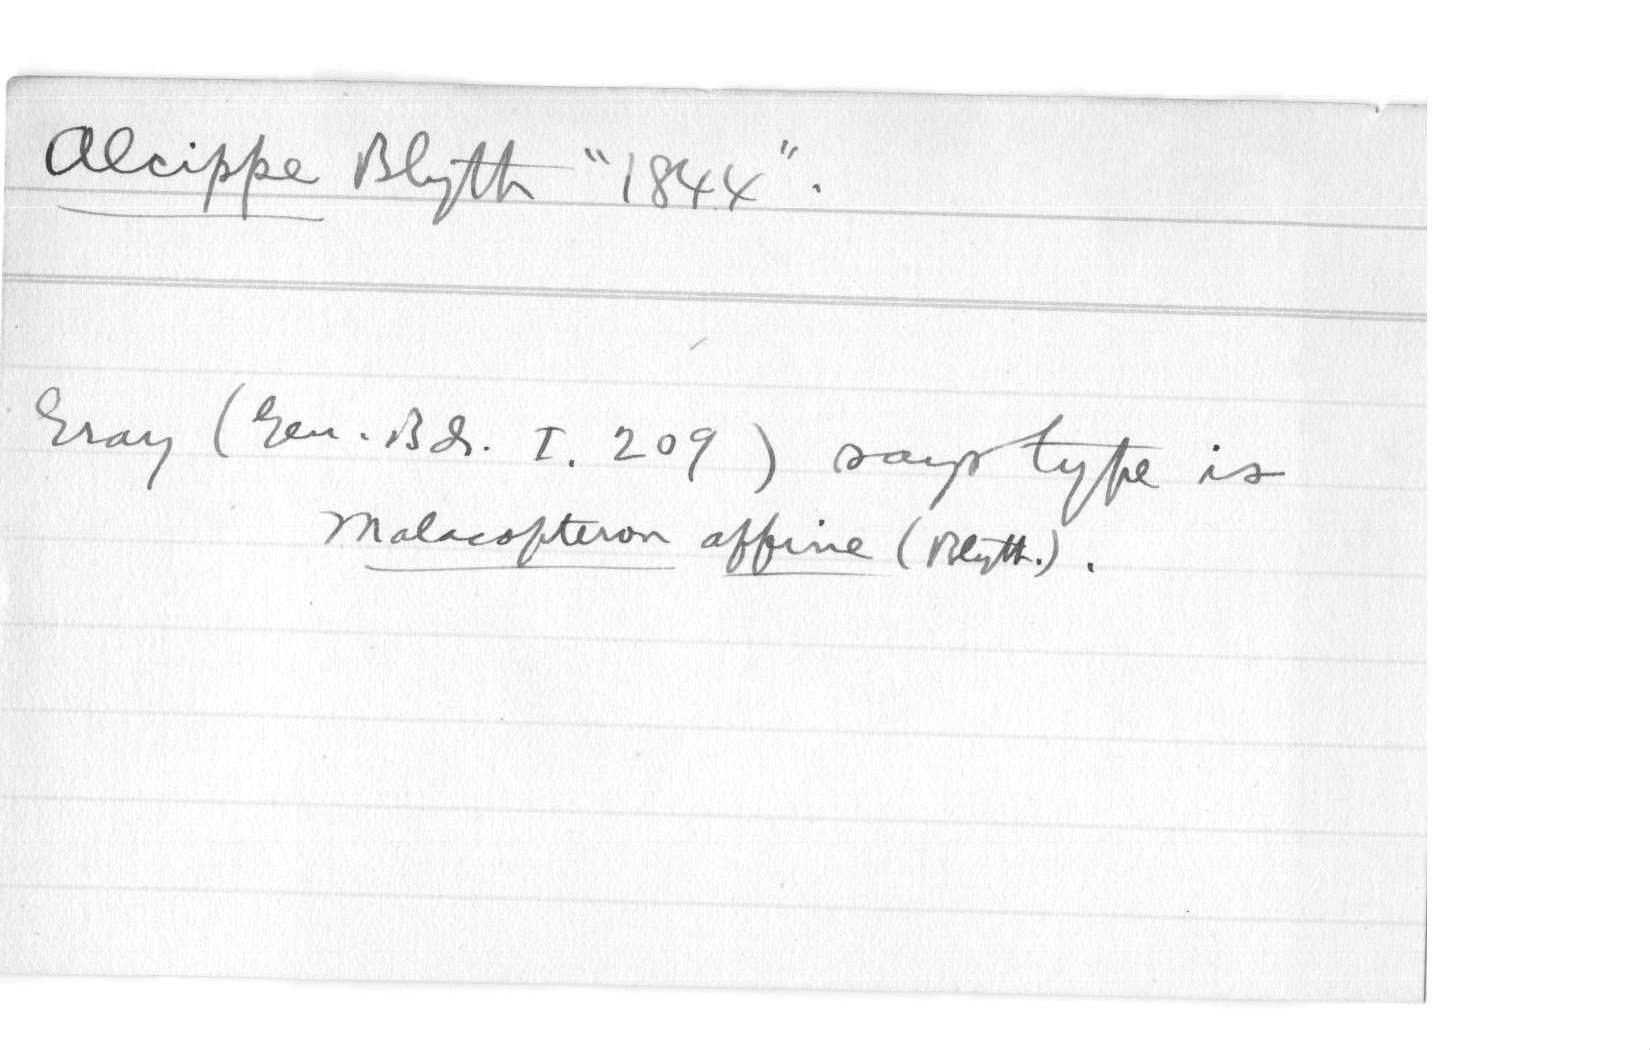 Alcippe Blyth "1844".
Gray (Gen. Bds. I. 209) says type is
Malacopteron affine (Blyth.).